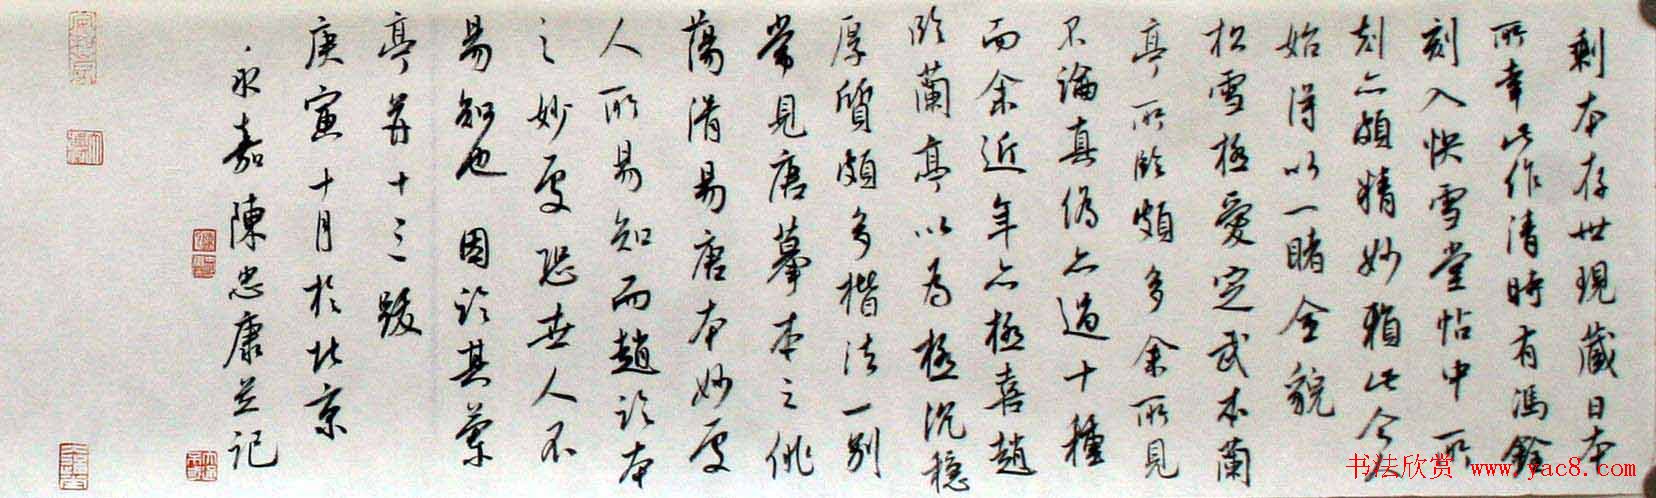 剩本存世現藏日本
所幸此作清時有馮銓
刻入快雪堂帖中所
刻亦頗精妙賴此今人
始得以一睹全貌
松雪極愛定武本蘭
亭所臨頗多余所見
不論真偽亦過十種
而余近年亦極喜趙
臨蘭亭以為極沉穩
厚質頗多楷法一別
常見唐摹本之佻
蕩滑易唐本妙處
人所易知而趙臨本
之妙處恐世人不
易知也因臨其蘭
亭并十三跋
庚寅十月於北京
永嘉陳忠康并記
书法欣赏 www.yac8.com